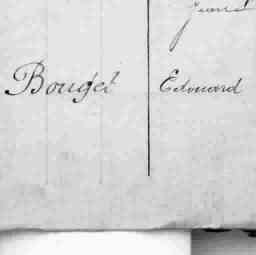 Bouget Edouard